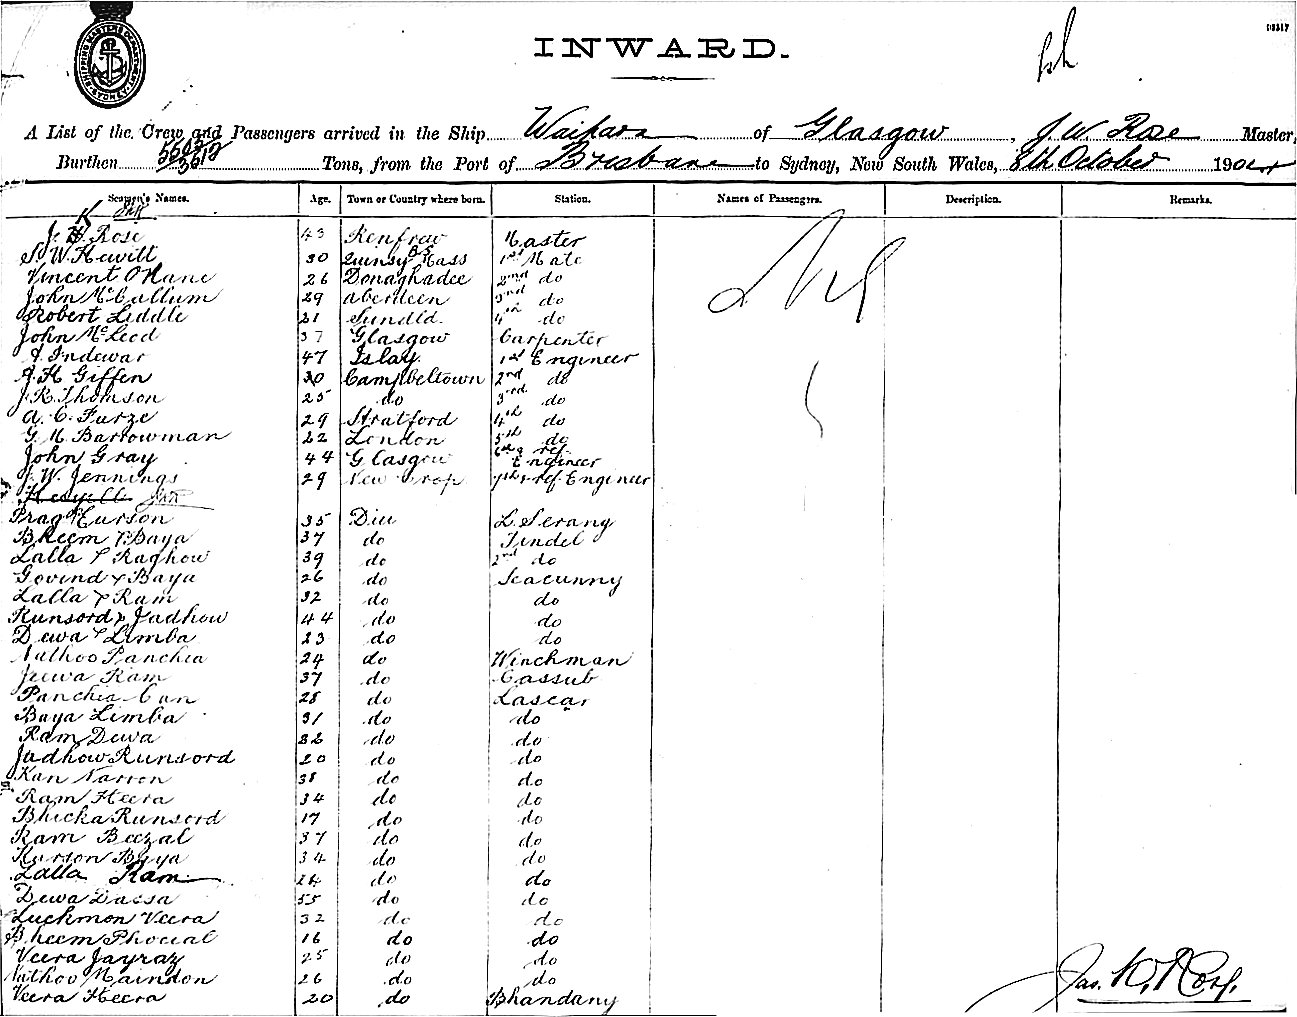 INWARD.
SHIPPING MASTERS DEPARTMENT SYDNEY
A List of the Crew and Passengers arrived in the Ship Waipara of Glasgow, J. W. Rose Master,
Burthen Tons, from the Port of Brisbane to Sydney, New South Wales, 8th October 1904
Seamen's Names. Age. Town or Country where born. Station. Names of Passengers. Description. Remarks.
K
J. Rose 43 Renfrew Master
S. W. Hewitt 30 Quinsy Mass 1st Mate
Vincent O'Hane 26 Donaghadee 2nd do
John McCallum 29 Aberdeen 3rd do
Robert Liddle 21 Sundld. 4th do
John McLeod 37 Glasgow Carpenter
A. Indewar 47 Islay 1st Engineer
J. H. Giffen 30 Campbeltown 2nd do
J. R. Thomson 25 do 3rd do
A. C. Furze 29 Stratford 4th do
G. M. Barrowman 22 London 5th do
John Gray 44 Glasgow 6th & ref. Engineer
J. W. Jennings 29 New 7th & ref. Engineer
Prag Kurson 35 Diu L. Serang
Bheem Baya 37 do Tindel
Lalla Raghow 39 do 2nd do
Govind Baya 26 do Seacunny
Lalla Ram 32 do do
Runsord Jadhow 44 do do
Dewa Limba 23 do do
Nathoo Panchia 24 do Winchman
Jeewa Ram 37 do Cassub
Panchia Can 28 do Lascar
Baya Limba 31 do do
Ram Dewa 32 do do
Jadhow Runsord 20 do do
Kan Narron 38 do do
Ram Heera 34 do do
Bhicka Runsord 17 do do
Ram Beezal 37 do do
Kurson Baya 34 do do
Lalla Ram 24 do do
Dewa Dassa 55 do do
Luckmon Veera 32 do do
Bheem Phocial 16 do do
Veera Jayraz 25 do do
Nathoo Maindon 26 do do
Veera Heera 20 do Bhandany
Jas. K. Rose.